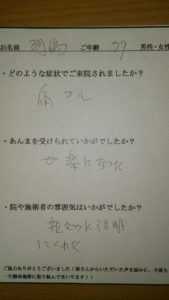 お名前 ご年齢 39 男性・女性
・どのような症状でご来院されましたか？
肩コル
・あんまを受けられていかがでしたか？
楽になった
・院や施術者の雰囲気はいかがでしたか？
親せつに説明
してくれた
ご協力ありがとうございました！皆さんからいただいた声を励みに、今後も